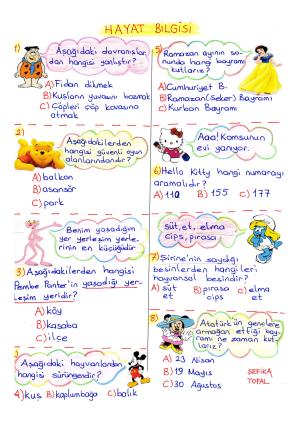 HAYAT BİLGİSİ
1)
Aşağıdaki davranışlar-
dan hangisi yanlıştır?
A)Fidan dikmek
B)Kuşların yuvasını bozmak
C)Çöpleri çöp kovasına
atmak
2)
Aşağıdakilerden
hangisi güvenli oyun
alanlarındandır?
A)balkon
B)asansör
C)park
Benim yaşadığım
yer yerleşim yerle-
rinin en küçüğüdür
3)Aşağıdakilerden hangisi
Pembe Panter'in yaşadığı yer-
leşim yeridir?
A)köy
B)kasaba
C)ilçe
Aşağıdaki hayvanlardan
hangisi sürüngendir?
4)A)kuş B)kaplumbağa C)balık
5)
Ramazan ayının so-
nunda hangi bayramı
kutlarız?
A)Cumhuriyet B.
B)Ramazan(Şeker) Bayramı
C)Kurban Bayramı
Aaa! Komşunun
evi yanıyor.
6)Hello Kitty hangi numarayı
aramalıdır?
A)110 B) 155 C) 177
süt, et, elma
cips, pırasa
7)Şirine'nin saydığı
besinlerden hangileri
hayvansal besindir?
A)süt B)pırasa C)elma
et cips et
8)
Atatürk'ün gençlere
armağan ettiği bay-
ramı ne zaman kut-
larız?
A) 23 Nisan
B) 19 Mayıs
C) 30 Ağustos
ŞEFİKA
TOPAL